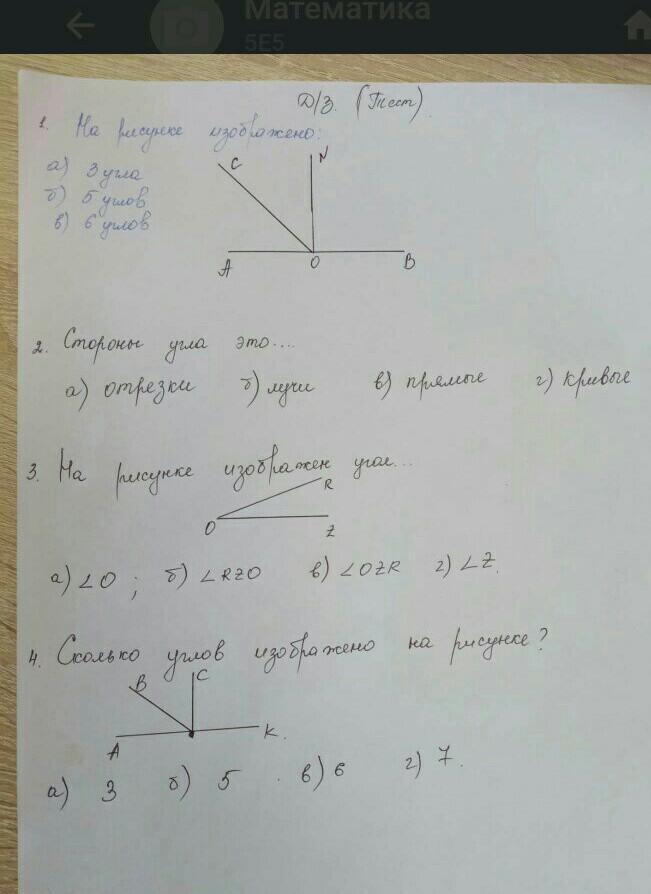 Математика
5E5
Д/З. (Тест).
1. На рисунке изображено:
а) 3 угла
б) 5 углов
в) 6 углов
C N
A O B
2. Стороны угла это...
а) отрезки б) лучи в) прямые г) кривые
3. На рисунке изображен угол...
R
O Z
а) ∠O ; б) ∠RZO в) ∠OZR г) ∠Z.
4. Сколько углов изображено на рисунке?
B C
A K.
а) 3 б) 5 в) 6 г) 7.